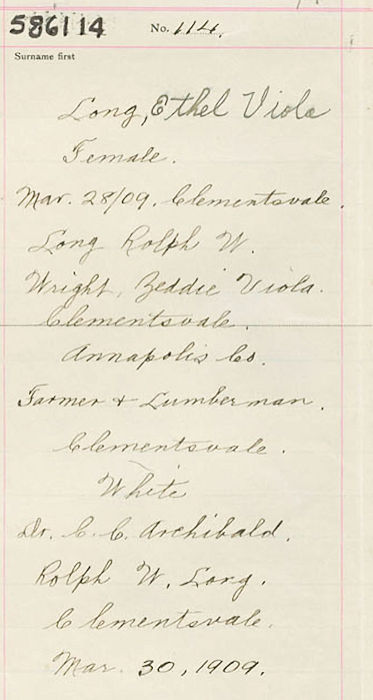 586114
No. 114.
Surname first
Long, Ethel Viola
Female.
Mar. 28/09. Clementsvale.
Long Rolph W.
Wright, Zeddie Viola.
Clementsvale.
Annapolis Co.
Farmer & Lumberman.
Clementsvale.
White
Dr. C. C. Archibald.
Rolph W. Long.
Clementsvale.
Mar. 30, 1909.